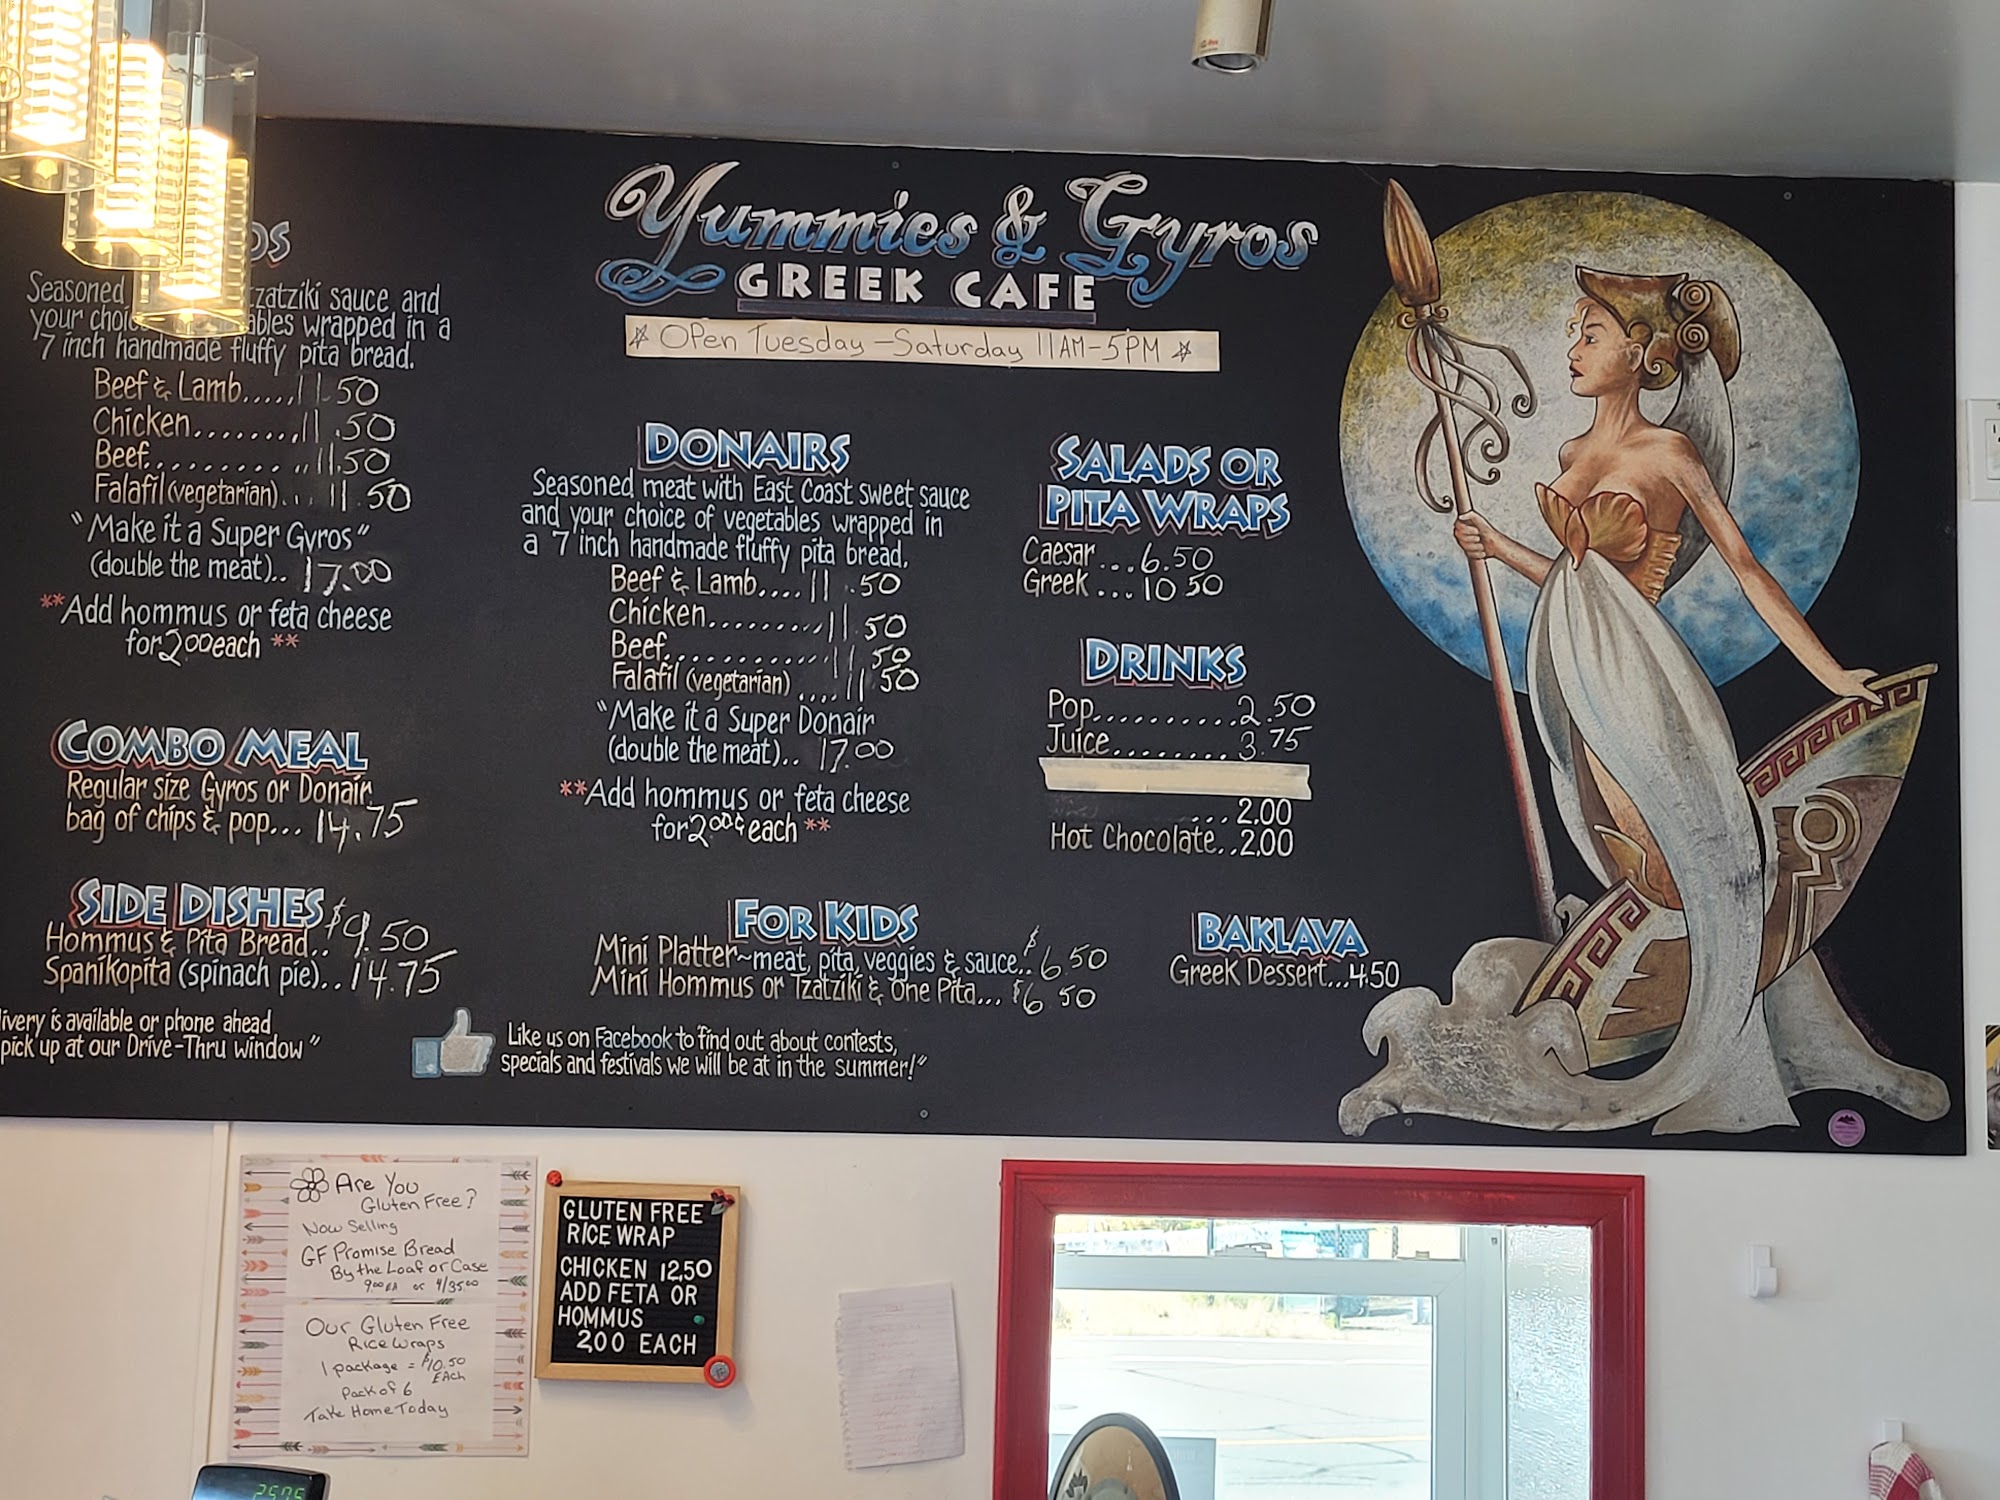 Yummies & Gyros
GREEK CAFE
☆ Open Tuesday - Saturday 11AM-5PM ☆
OS
Seasoned tzatziki sauce and
your choice wrapped in a
7 inch handmade fluffy pita bread.
Beef & Lamb.....11.50
Chicken........11.50
Beef..........11.50
Falafil (vegetarian)...11.50
"Make it a Super Gyros"
(double the meat)..17.00
**Add hommus or feta cheese
for 2.00 each **
COMBO MEAL
Regular size Gyros or Donair,
bag of chips & pop...14.75
SIDE DISHES
Hommus & Pita Bread..$9.50
Spanikopita (spinach pie)..14.75
livery is available or phone ahead
pick up at our Drive-Thru window"
DONAIRS
Seasoned meat with East Coast sweet sauce
and your choice of vegetables wrapped in
a 7 inch handmade fluffy pita bread.
Beef & Lamb....11.50
Chicken.........11.50
Beef.............11.50
Falafil (vegetarian)....11.50
"Make it a Super Donair
(double the meat)..17.00
**Add hommus or feta cheese
for 2.00¢ each **
FOR KIDS
Mini Platter~meat, pita, veggies & sauce..$6.50
Mini Hommus or Tzatziki & One Pita...$6.50
Like us on Facebook to find out about contests,
specials and festivals we will be at in the summer!"
SALADS OR
PITA WRAPS
Caesar...6.50
Greek...10.50
DRINKS
Pop..........2.50
Juice.........3.75
...2.00
Hot Chocolate..2.00
BAKLAVA
Greek Dessert...4.50
Are You
Gluten Free?
Now Selling
GF Promise Bread
By the Loaf or Case
9.00 EA or 4/35.00
Our Gluten Free
Rice Wraps
1 package = $10.50
EAch
Pack of 6
Take Home Today
GLUTEN FREE
RICE WRAP
CHICKEN 12.50
ADD FETA OR
HOMMUS
2.00 EACH
25.75